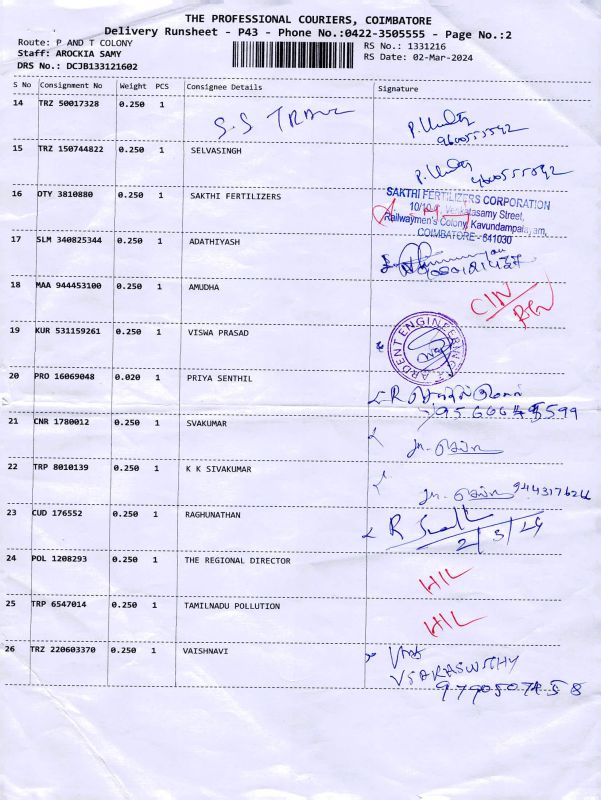 THE PROFESSIONAL COURIERS, COIMBATORE
Delivery Runsheet - P43 - Phone No.:0422-3505555 - Page No.:2
Route: P AND T COLONY
RS No.: 1331216
Staff: AROCKIA SAMY
RS Date: 02-Mar-2024
DRS No.: DCJB133121602
S No Consignment No Weight PCS Consignee Details Signature
14 TRZ 50017328 0.250 1 S.S
15 TRZ 150744822 0.250 1 SELVASINGH
16 OTY 3810880 0.250 1 SAKTHI FERTILIZERS
SAKTHI FERTILIZERS CORPORATION
Venkatasamy Street,
Railwaymen's Colony, Kavundampalayam,
COIMBATORE - 641030
17 SLM 340825344 0.250 1 ADATHIYASH
18 MAA 944453100 0.250 1 AMUDHA
19 KUR 531159261 0.250 1 VISWA PRASAD
ARDENT ENGINEERING
20 PRO 16069048 0.020 1 PRIYA SENTHIL
21 CNR 1780012 0.250 1 SVAKUMAR
22 TRP 8010139 0.250 1 K K SIVAKUMAR
23 CUD 176552 0.250 1 RAGHUNATHAN
2/3/24
24 POL 1208293 0.250 1 THE REGIONAL DIRECTOR
HIL
25 TRP 6547014 0.250 1 TAMILNADU POLLUTION
HIL
26 TRZ 220603370 0.250 1 VAISHNAVI